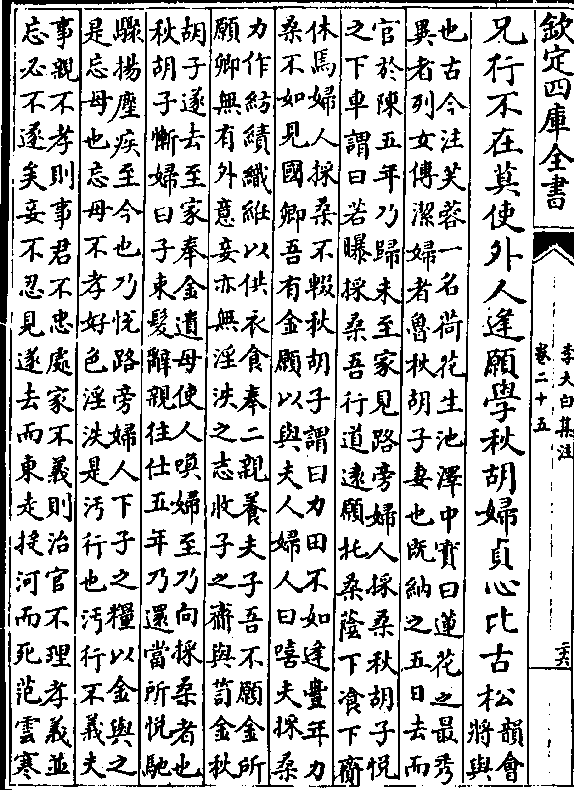 欽定四庫全書
李太白集注
卷二十五
二六
兄行不在莫使外人逢願學秋胡婦貞心比古松韻會
將與
也古今注芙蓉一名荷花生池澤中實曰蓮花之最秀
異者列女傳潔婦者魯秋胡子妻也既納之五日去而
官於陳五年乃歸未至家見路旁婦人採桑秋胡子悅
之下車謂曰若曝採桑吾行道遠願托桑蔭下飡下齎
休焉婦人採桑不輟秋胡子謂曰力田不如逢豐年力
桑不如見國卿吾有金願以與夫人婦人曰嘻夫採桑
力作紡績織紝以供衣食奉二親養夫子吾不願金所
願卿無有外意妾亦無淫泆之志收子之齎與笥金秋
胡子遂去至家奉金遺母使人喚婦至乃向採桑者也
秋胡子慚婦曰子束髮辭親往仕五年乃還當所悅馳
驟揚塵疾至今也乃悅路旁婦人下子之糧以金與之
是忘母也忘母不孝好色淫泆是污行也污行不義夫
事親不孝則事君不忠處家不義則治官不理孝義並
忘必不遂矣妾不忍見遂去而東走投河而死范雲寒